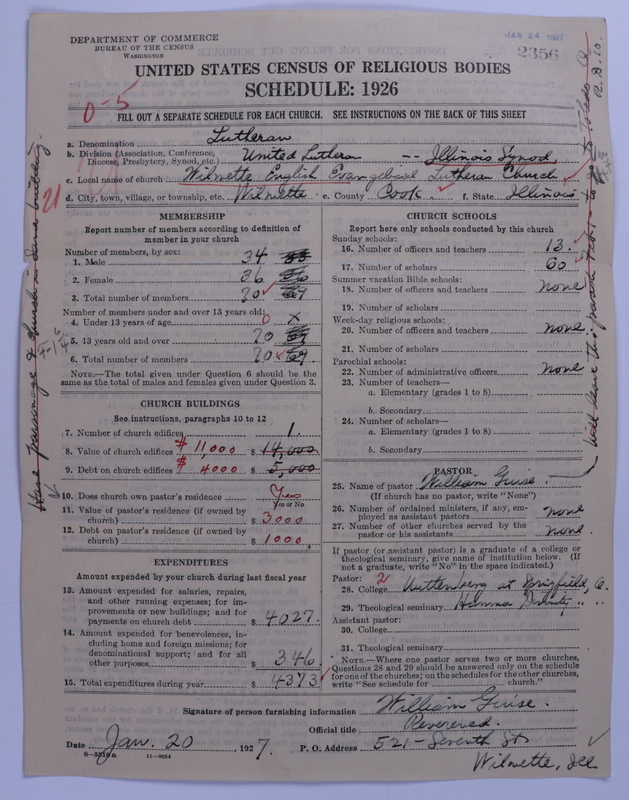 DEPARTMENT OF COMMERCE
BUREAU OF THE CENSUS
WASHINGTON
JAN 24 1927
2356
UNITED STATES CENSUS OF RELIGIOUS BODIES
SCHEDULE: 1926
0-5
FILL OUT A SEPARATE SCHEDULE FOR EACH CHURCH. SEE INSTRUCTIONS ON THE BACK OF THIS SHEET
a. Denomination Lutheran
b. Division (Association, Conference, Diocese, Presbytery, Synod, etc.) United Luthern -- Illinois Synod
c. Local name of church Wilmette English Evangelical Lutheran Church
d. City, town, village, or township, etc. Wilmette e. County Cook f. State Illinois
21
MEMBERSHIP
Report number of members according to definition of
member in your church
Number of members, by sex:
1. Male 34
2. Female 36
3. Total number of members 70
Number of members under and over 13 years old:
4. Under 13 years of age 0 x
5. 13 years old and over 70
6. Total number of members 70
NOTE.—The total given under Question 6 should be the
same as the total of males and females given under Question 3.
CHURCH BUILDINGS
See instructions, paragraphs 10 to 12
7. Number of church edifices 1.
8. Value of church edifices $ 11,000 $ 14,000
9. Debt on church edifices $ 4000 $ 5,000
10. Does church own pastor's residence Yes
Yes or No
11. Value of pastor's residence (if owned by
church) $ 3000
12. Debt on pastor's residence (if owned by
church) $ 1000
EXPENDITURES
Amount expended by your church during last fiscal year
13. Amount expended for salaries, repairs,
and other running expenses; for im-
provements or new buildings; and for
payments on church debt $ 4027.
14. Amount expended for benevolences, in-
cluding home and foreign missions; for
denominational support; and for all
other purposes $ 346.
15. Total expenditures during year $ 4373
CHURCH SCHOOLS
Report here only schools conducted by this church
Sunday schools:
16. Number of officers and teachers 13.
17. Number of scholars 60
Summer vacation Bible schools:
18. Number of officers and teachers none
19. Number of scholars
Week-day religious schools:
20. Number of officers and teachers none
21. Number of scholars
Parochial schools:
22. Number of administrative officers none
23. Number of teachers—
a. Elementary (grades 1 to 8)
b. Secondary
24. Number of scholars—
a. Elementary (grades 1 to 8)
b. Secondary
PASTOR
25. Name of pastor William Guise.
(If church has no pastor, write "None")
26. Number of ordained ministers, if any, em-
ployed as assistant pastors none
27. Number of other churches served by the
pastor or his assistants none.
If pastor (or assistant pastor) is a graduate of a college or
theological seminary, give name of institution below. (If
not a graduate, write "No" in the space indicated.)
Pastor: 2
28. College at O.
29. Theological seminary Hamma Divinity " "
Assistant pastor:
30. College
31. Theological seminary
NOTE.—Where one pastor serves two or more churches,
Questions 28 and 29 should be answered only on the schedule
for one of the churches; on the schedules for the other churches,
write "See schedule for church."
Signature of person furnishing information William Guise.
Official title Revererend.
Date Jan. 20 1927. P. O. Address 521 - Seventh St
Wilmette, Ill
8-5516a 11-9054
Have parsonage & church in same building.